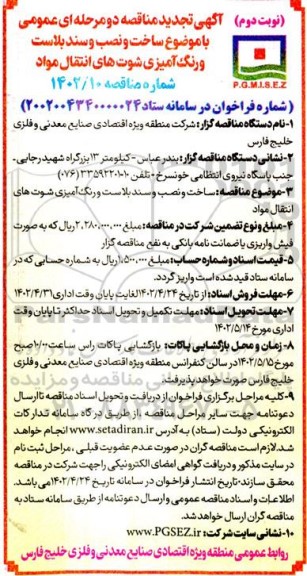 (نوبت دوم)
آگهی تجدید مناقصه دو مرحله ای عمومی
با موضوع ساخت و نصب و سند بلاست
و رنگ آمیزی شوت های انتقال مواد
شماره مناقصه ۱۴۰۲/۱۰
P.G.M.I.S.E.Z
(شماره فراخوان در سامانه ستاد ۲۰۰۲۰۰۴۳۴۰۰۰۰۰۲۴)
۱-نام دستگاه مناقصه گزار: شرکت منطقه ویژه اقتصادی صنایع معدنی و فلزی
خلیج فارس
۲-نشانی دستگاه مناقصه گزار: بندرعباس - کیلومتر ۱۳ بزرگراه شهید رجایی-
جنب پاسگاه نیروی انتظامی خونسرخ - تلفن ۱۰-۳۳۵۹۲۲۰۱ (۰۷۶)
۳-موضوع مناقصه: ساخت و نصب و سند بلاست و رنگ آمیزی شوت های
انتقال مواد
۴-مبلغ و نوع تضمین شرکت در مناقصه: مبلغ ۲،۲۸۰،۰۰۰،۰۰۰ ریال که به صورت
فیش واریزی یا ضمانت نامه بانکی به نفع مناقصه گزار
۵-قیمت اسناد و شماره حساب: مبلغ ۱،۵۰۰،۰۰۰ ریال به شماره حسابی که در
سامانه ستاد قید شده است واریز گردد.
۶-مهلت فروش اسناد: از تاریخ ۱۴۰۲/۴/۲۴ لغایت پایان وقت اداری ۱۴۰۲/۴/۳۱
۷-مهلت تحویل اسناد: مهلت تکمیل و تحویل اسناد حداکثر تا پایان وقت
اداری مورخ ۱۴۰۲/۵/۱۴
۸-زمان و محل بازگشایی پاکات: بازگشایی پاکات راس ساعت ۱۰/۰۰ صبح
مورخ ۱۴۰۲/۵/۱۵ در سالن کنفرانس منطقه ویژه اقتصادی صنایع معدنی و فلزی
خلیج فارس صورت خواهد پذیرفت.
۹-کلیه مراحل برگزاری فراخوان از دریافت و تحویل اسناد مناقصه تا ارسال
دعوتنامه جهت سایر مراحل مناقصه، از طریق درگاه سامانه تدارکات
الکترونیکی دولت (ستاد) به آدرس www.setadiran.ir انجام خواهد
شد. لازم است مناقصه گران در صورت عدم عضویت قبلی، مراحل ثبت نام
در سایت مذکور و دریافت گواهی امضای الکترونیکی را جهت شرکت در مناقصه
محقق سازند؛ تاریخ انتشار فراخوان در سامانه تاریخ ۱۴۰۲/۴/۲۴ می باشد.
اطلاعات و اسناد مناقصه عمومی و ارسال دعوتنامه از طریق سامانه ستاد به
مناقصه گران ارسال خواهد شد.
۱۰-نشانی سایت شرکت: www.PGSEZ.ir
روابط عمومی منطقه ویژه اقتصادی صنایع معدنی و فلزی خلیج فارس